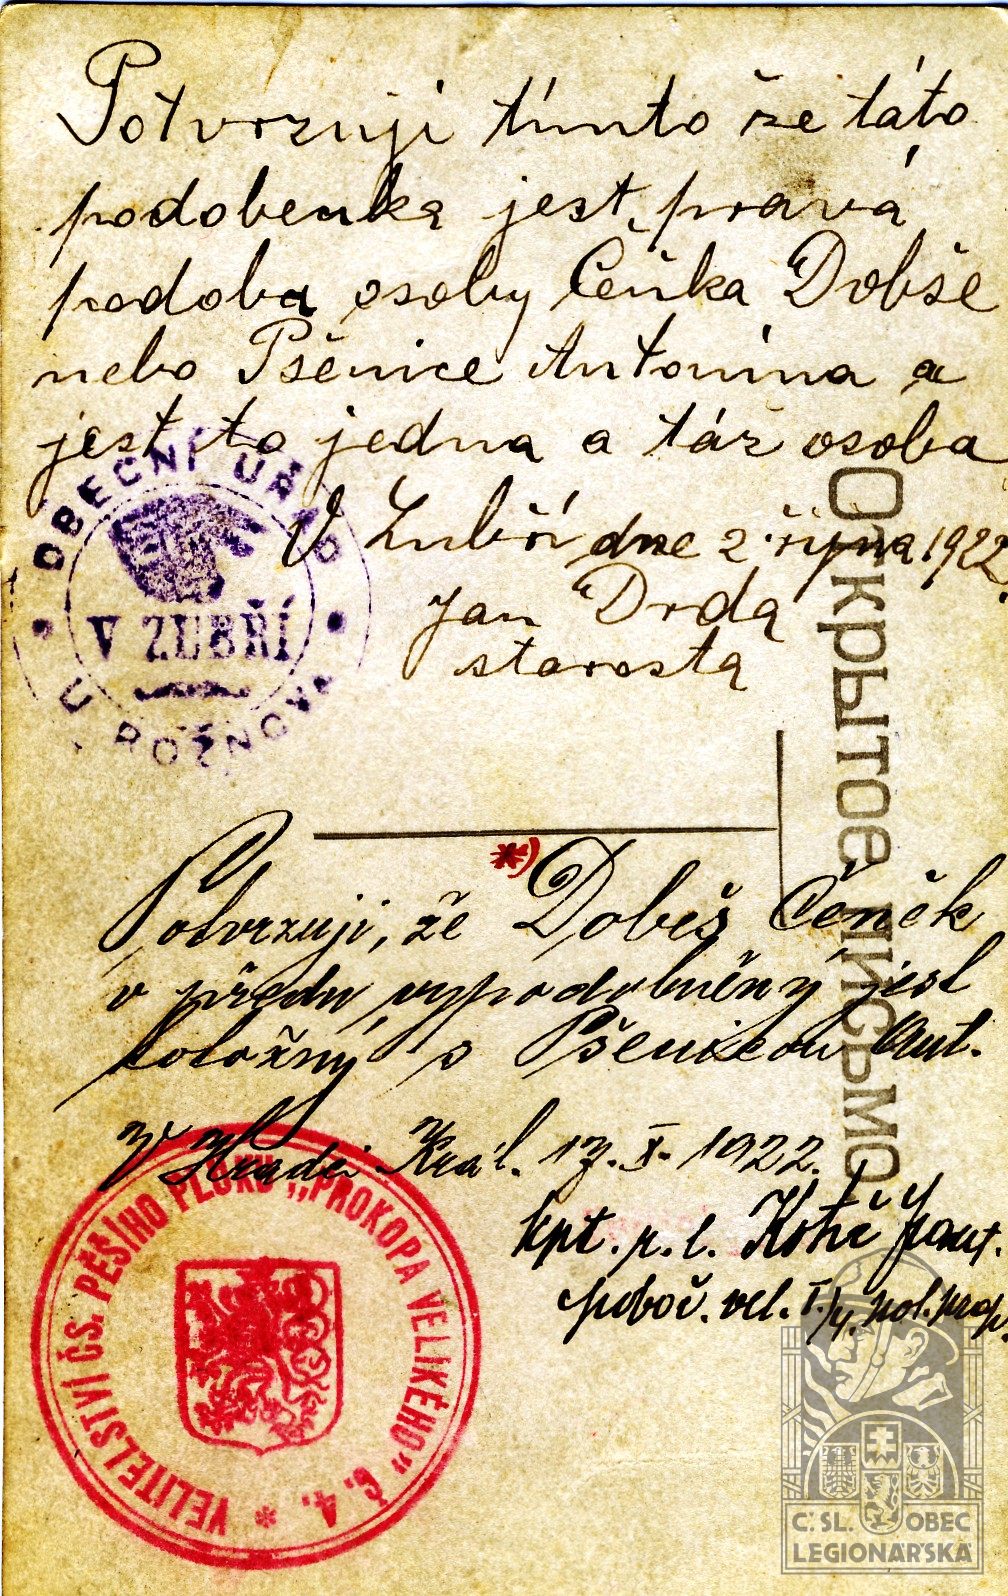 Potvrzuji tímto že táto
podobenka jest pravá
podoba osoby Čeňka Dobše
nebo Pšenice Antonína a
jest to jedna a táž osoba
V Zubří dne 2. října 1922.
Jan Drda
starosta
OBECNÍ ÚŘAD
V ZUBŘÍ
U ROŽNOVA
Открытое письмо
*) Dobeš Čeněk
Potvrzuji, že
v předu vypodobněný jest
totožný s Pšenicou Ant.
V Hradci Král. 17. X. 1922.
kpt. p. l. Jaut.
poboč. vel. I./4. pol. prap.
VELITELSTVÍ ČS. PĚŠÍHO PLUKU „PROKOPA VELIKÉHO" Č. 4. *
Č. SL. OBEC
LEGIONÁŘSKÁ